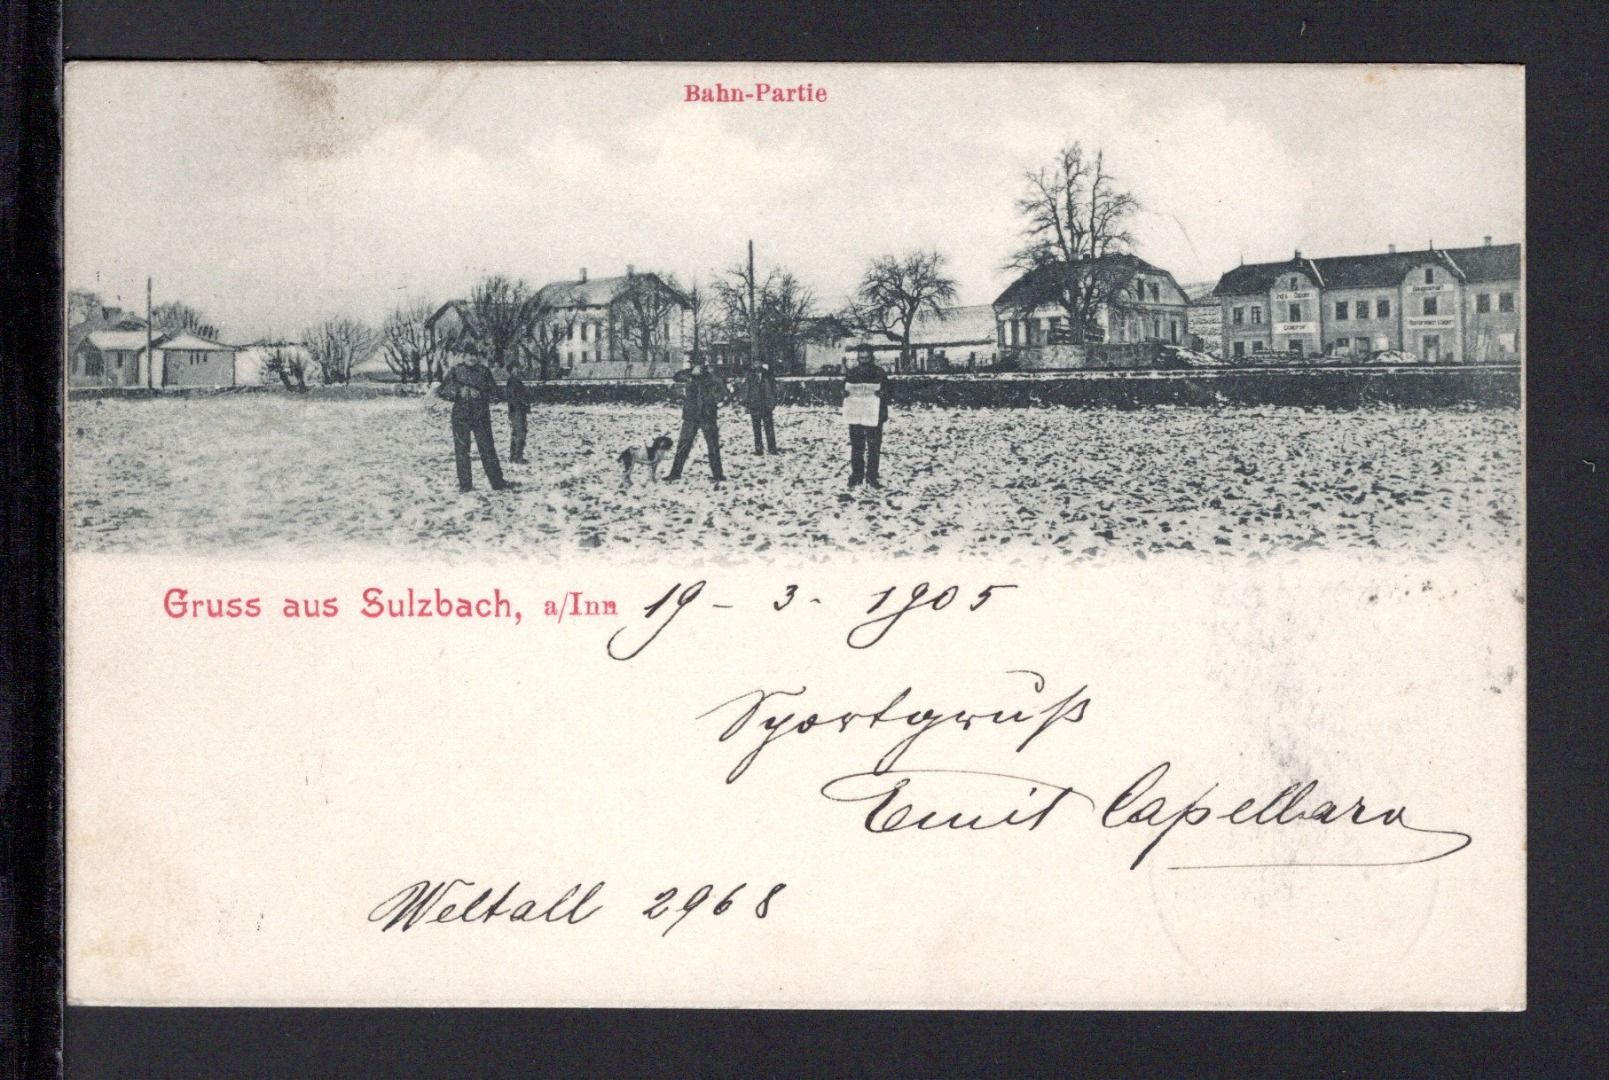 Bahn-Partie
Gruss aus Sulzbach, a/Inn 19 - 3. 1905
Sportgruß
Emil Capellaro
Weltall 2968